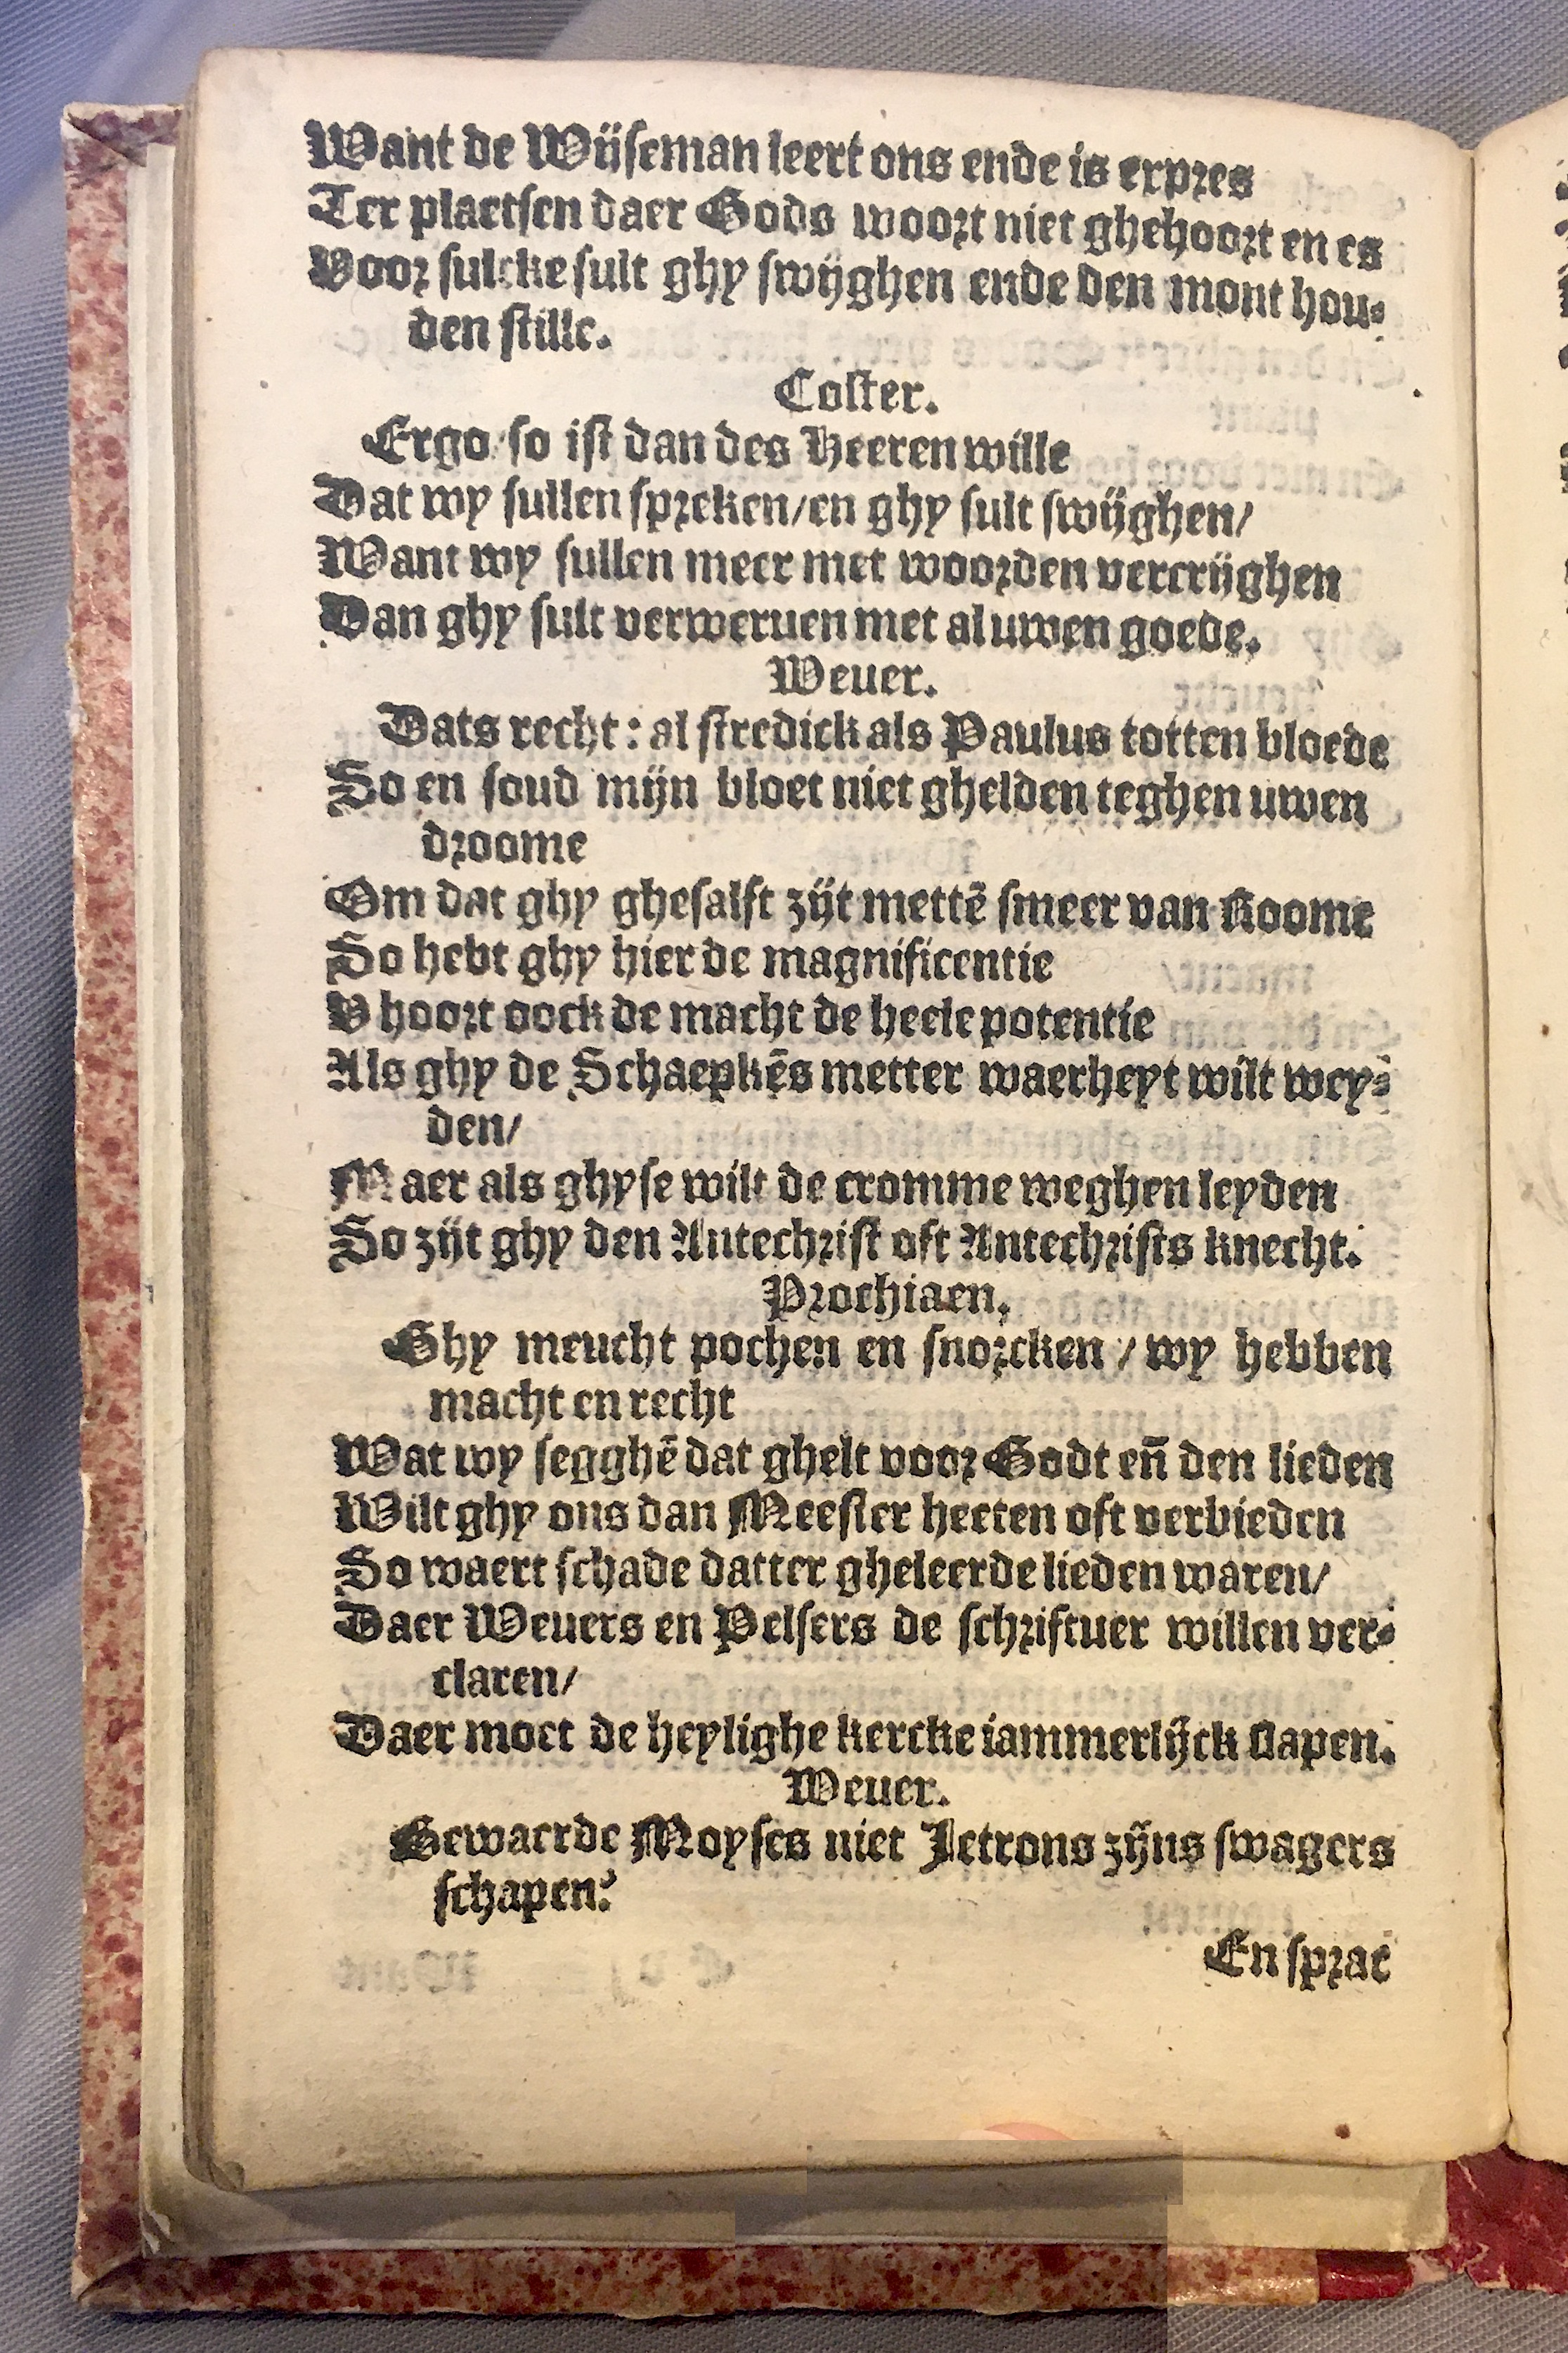 Want de Wijseman leert ons ende is expres
Ter plaetsen daer Gods woort niet ghehoort en es
Voor sulcke sult ghy swijghen ende den mont hou-
den stille.
Coster.
Ergo so ist dan des Heeren wille
Dat wy sullen spreken/en ghy sult swijghen/
Want wy sullen meer met woorden vercrijghen
Dan ghy sult verweruen met al uwen goede.
Weuer.
Dats recht: al stredick als Paulus totten bloede
So en soud mijn bloet niet ghelden teghen uwen
droome
Om dat ghy ghesalft zijt mettē smeer van Roome
So hebt ghy hier de magnificentie
V hoort oock de macht de heele potentie
Als ghy de Schaepkēs metter waerheyt wilt wey-
den/
Maer als ghyse wilt de cromme weghen leyden
So zijt ghy den Antechrist oft Antechrists knecht.
Prochiaen.
Ghy meucht pochen en snorcken / wy hebben
macht en recht
Wat wy segghē dat ghelt voor Godt eñ den lieden
Wilt ghy ons dan Meester heeten oft verbieden
So waert schade datter gheleerde lieden waren/
Daer Weuers en Pelsers de schriftuer willen ver-
claren/
Daer moet de heylighe kercke iammerlijck slapen.
Weuer.
Gewaerde Moyses niet Jetrons zijns swagers
schapen?
En sprac